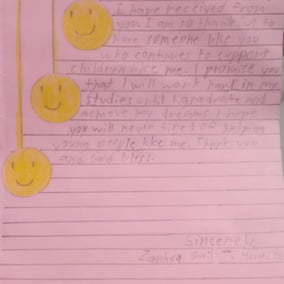 I have received from
you. I am so thankful to
have someone like you
who continues to support
children like me. I promise you
that I will work hard in my
studies until I graduate and
achieve my dreams. I hope
you will never tired of helping
young people like me. Thank you
and God bless.
Sincerely,